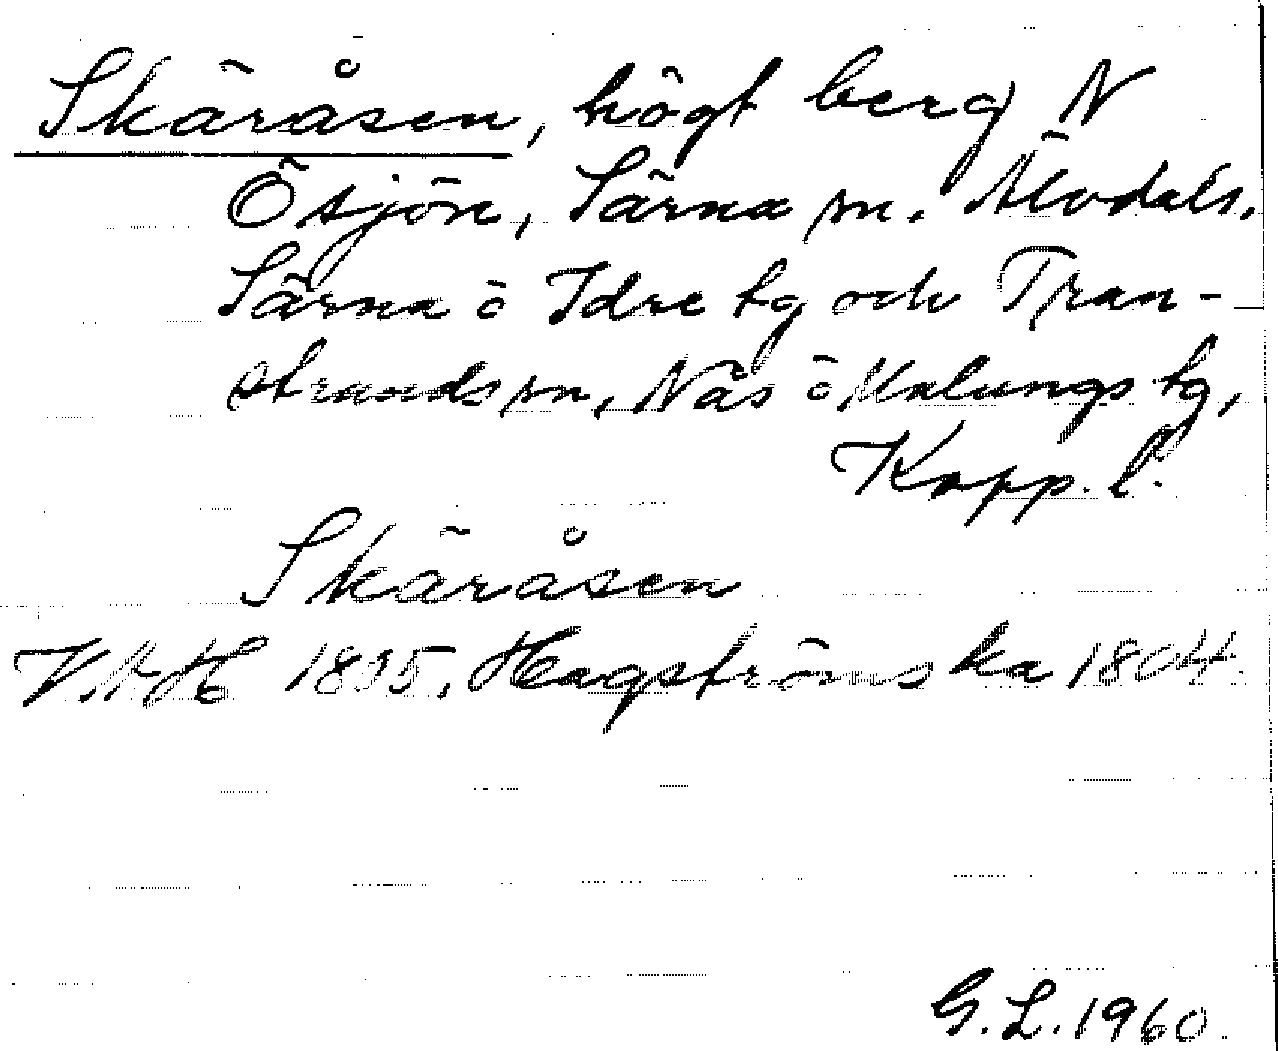 Skäråsen, högt berg N
Ösjön, Särna sn. Älvdals,
Särna o Idre tg och Tran-
strands sn, Nås o Malungs tg,
Kopp. l.
Skäråsen
1835. Hagströms ka 1804.
G.L. 1960.